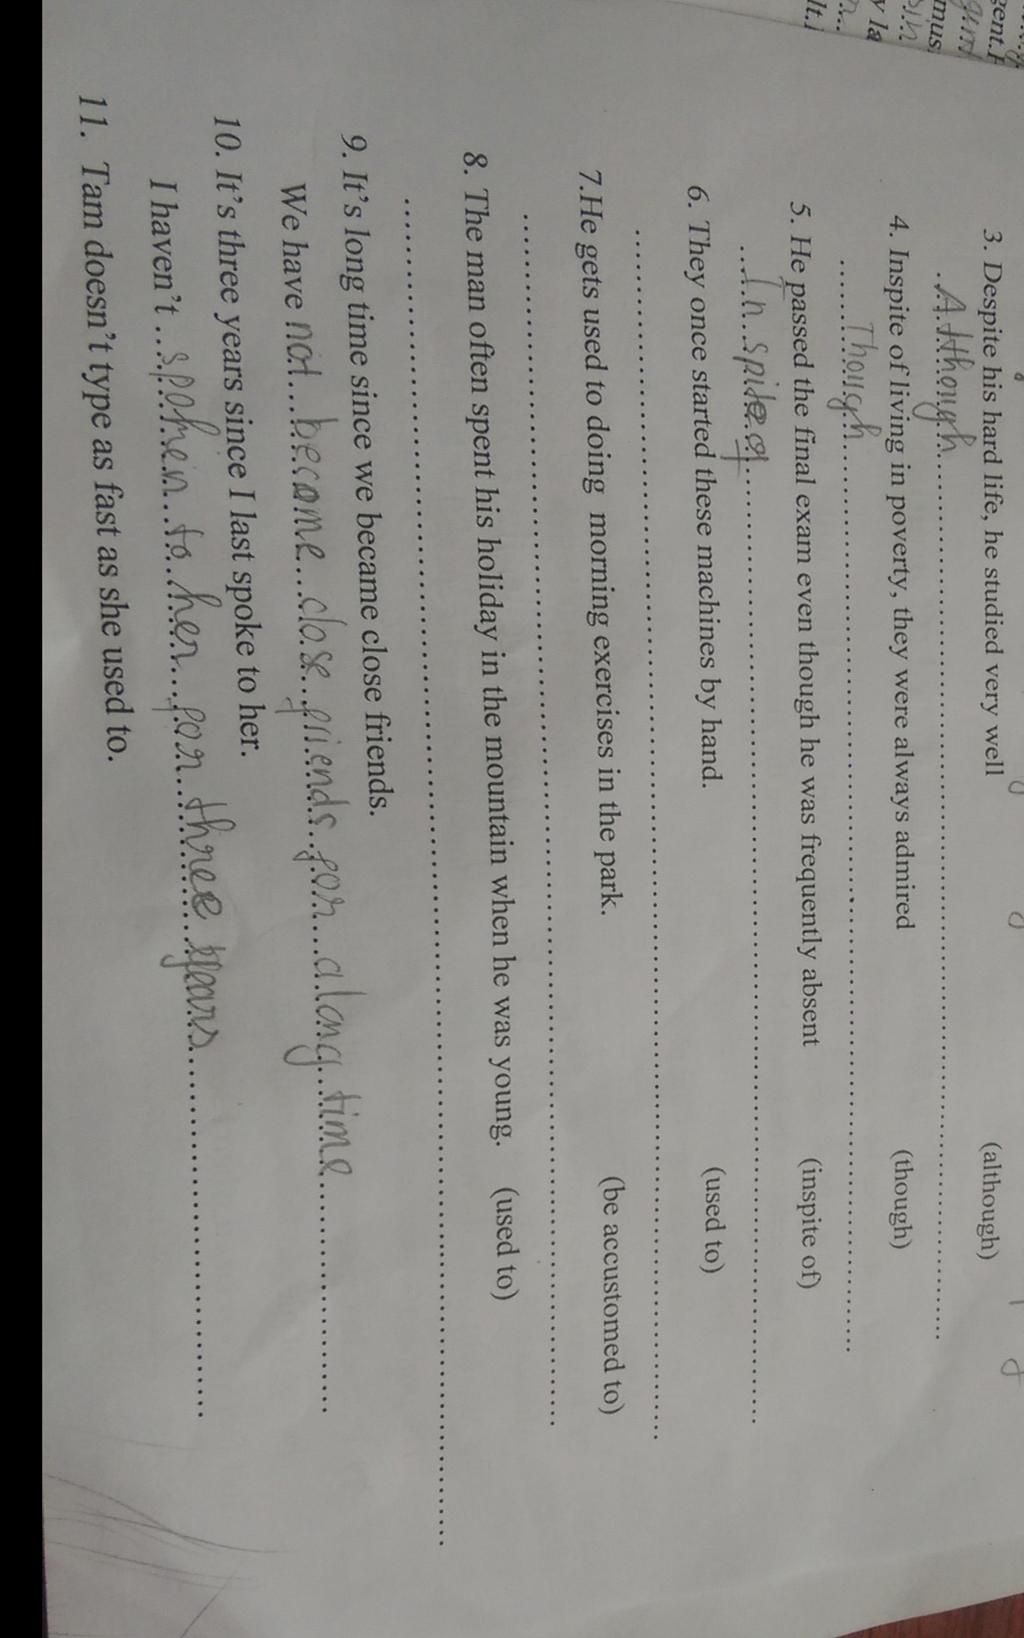 gent.H
mus
y la
lt.i
3. Despite his hard life, he studied very well (although)
.Although..........
4. Inspite of living in poverty, they were always admired (though)
.......Though..........
5. He passed the final exam even though he was frequently absent (inspite of)
....In spite of..........
6. They once started these machines by hand. (used to)
7.He gets used to doing morning exercises in the park. (be accustomed to)
8. The man often spent his holiday in the mountain when he was young. (used to)
9. It's long time since we became close friends.
We have not become close friends for a long time..........
10. It's three years since I last spoke to her.
I haven't ...spoken to her for three years..........
11. Tam doesn't type as fast as she used to.